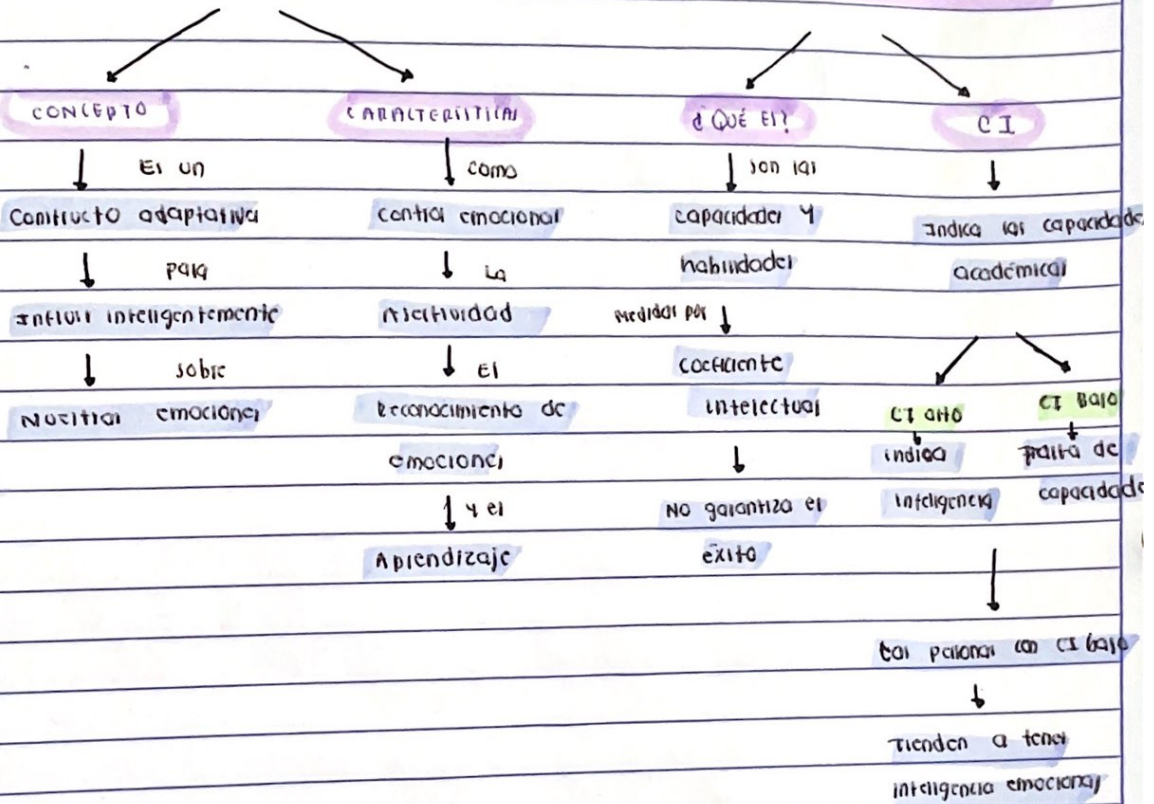 CONCEPTO
Es un
Constructo adaptativa
para
Influir inteligentemente
sobre
Nuestras emociones
CARACTERÍSTICAS
como
control emocional
La
Asertividad
El
Reconocimiento de
emociones
y el
Aprendizaje
¿QUÉ ES?
son las
capacidades y
habilidades
Medidas por
coeficiente
intelectual
No garantiza el
éxito
CI
Indica las capacidade
académicas
CI alto
indica
inteligencia
CI Bajo
Falta de
capacidade
Las personas con CI bajo
Tienden a tener
inteligencia emocional